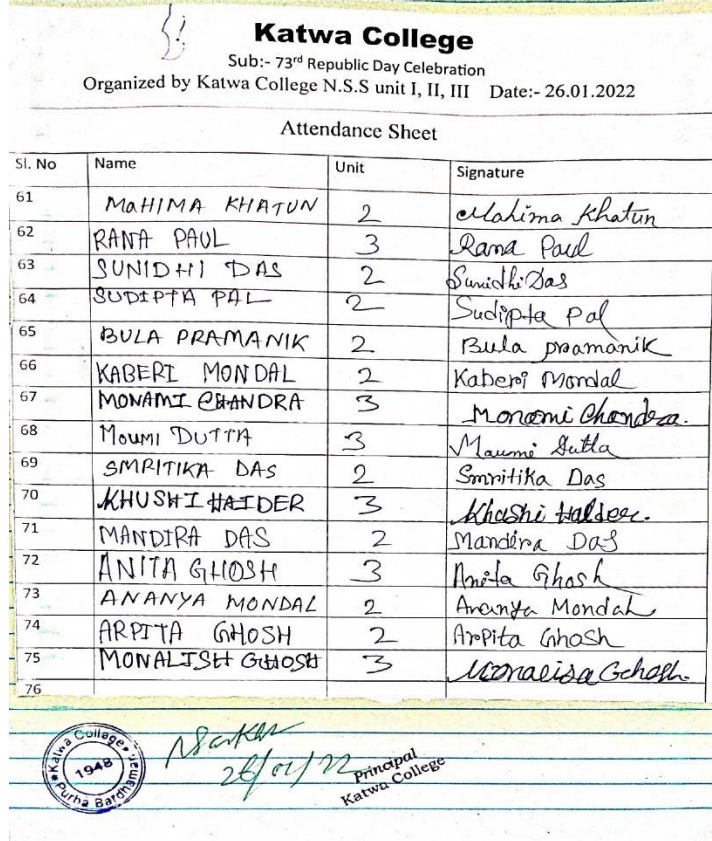 Katwa College
Sub:- 73rd Republic Day Celebration
Organized by Katwa College N.S.S unit I, II, III Date:- 26.01.2022
Attendance Sheet
Sl. No Name Unit Signature
61 MAHIMA KHATUN 2 Mahima Khatun
62 RANA PAUL 3 Rana Paul
63 SUNIDHI DAS 2 Sunidhi Das
64 SUDIPTA PAL 2 Sudipta Pal
65 BULA PRAMANIK 2 Bula pramanik
66 KABERI MONDAL 2 Kaberi Mondal
67 MONAMI CHANDRA 3 Monami Chandra.
68 MOUMI DUTTA 3 Moumi Dutta
69 SMRITIKA DAS 2 Smritika Das
70 KHUSHI HAIDER 3 Khushi Halder.
71 MANDIRA DAS 2 Mandira Das
72 ANITA GHOSH 3 Anita Ghosh
73 ANANYA MONDAL 2 Ananya Mondal
74 ARPITA GHOSH 2 Arpita Ghosh
75 MONALISH GHOSH 3 Monalisa Ghosh.
76
Katwa College
1948
Purba Bardhaman
26/01/22
Principal
Katwa College